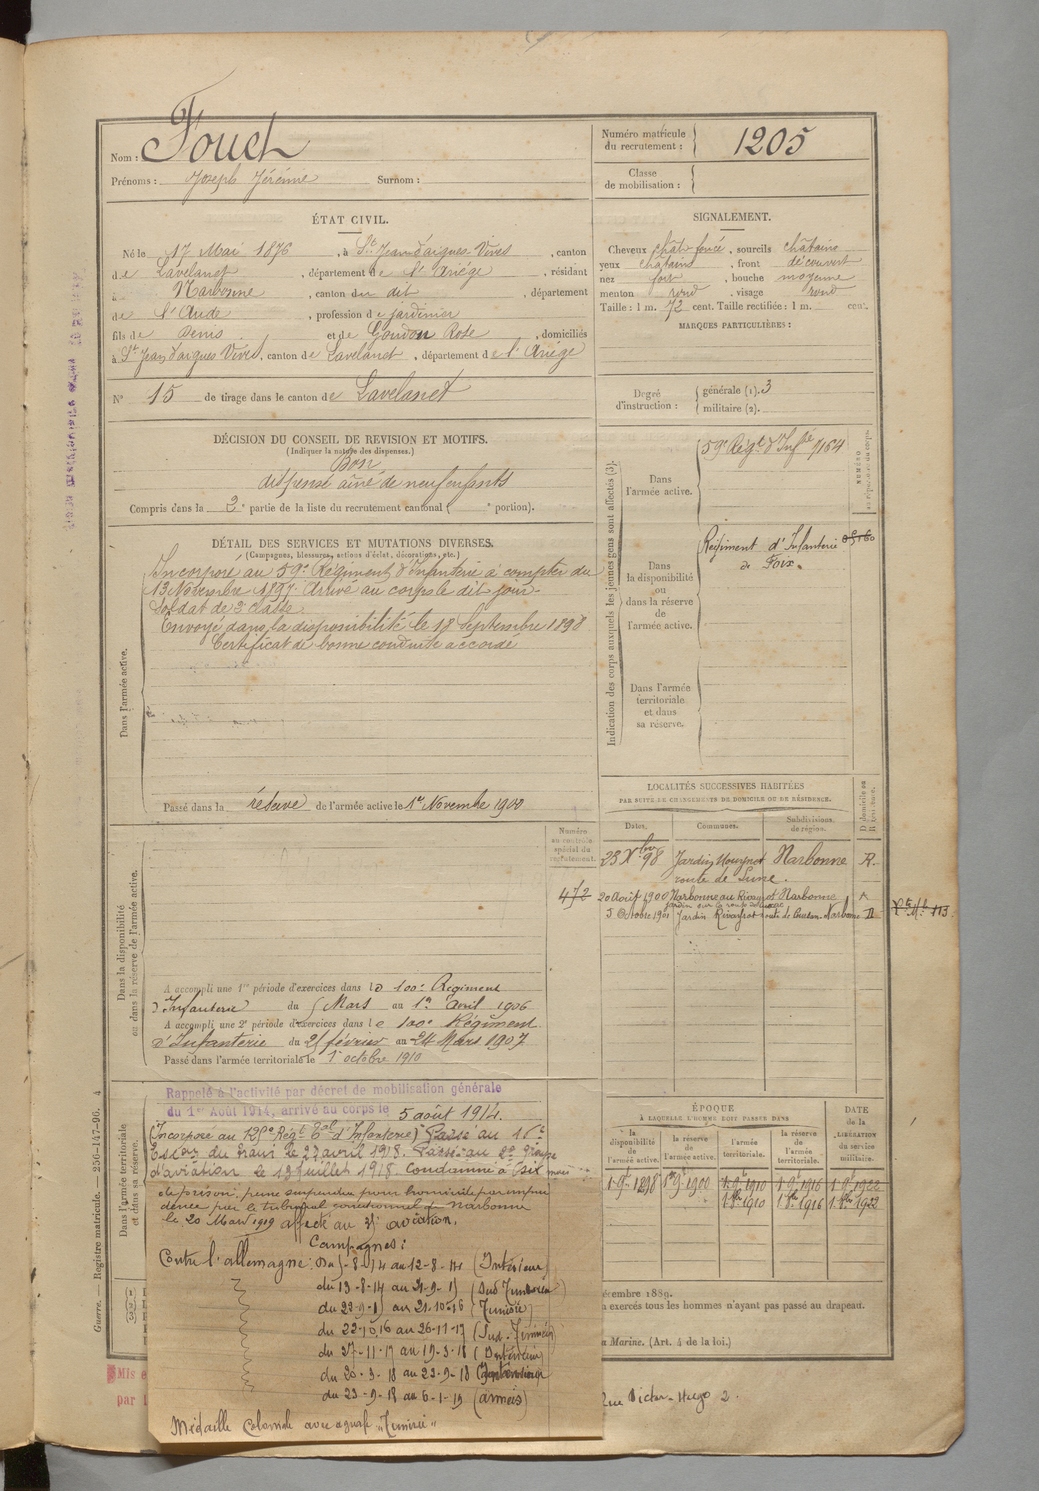 Nom : Fouch
Prénoms : Joseph Jérémie Surnom :
Numéro matricule du recrutement : 1205
Classe de mobilisation :
ÉTAT CIVIL.
Né le 17 Mai 1876, à St Jean d'aigues-Vives, canton
de Lavelanet, département de l'Ariège, résidant
à Narbonne, canton du dit, département
de l'Aude, profession de jardinier
fils de Denis et de Goudon Rose, domiciliés
à St Jean d'aigues Vives, canton de Lavelanet, département de l'Ariège
N° 15 de tirage dans le canton de Lavelanet
SIGNALEMENT.
Cheveux chât. foncé, sourcils châtains
yeux châtains, front découvert
nez fort, bouche moyenne
menton rond, visage rond
Taille : 1 m. 72 cent. Taille rectifiée : 1 m. cent.
MARQUES PARTICULIÈRES :
Degré d'instruction : générale (1). 3
militaire (2).
DÉCISION DU CONSEIL DE REVISION ET MOTIFS.
(Indiquer la nature des dispenses.)
Bon
dispensé aîné de neuf enfants
Compris dans la 2e partie de la liste du recrutement cantonal ( e portion).
DÉTAIL DES SERVICES ET MUTATIONS DIVERSES.
(Campagnes, blessures, actions d'éclat, décorations, etc.)
Dans l'armée active.
Incorporé au 59e Régiment d'Infanterie à compter du
13 Novembre 1897. Arrivé au corps le dit jour.
Soldat de 2e classe
Envoyé dans la disponibilité le 18 Septembre 1898
Certificat de bonne conduite accordé
Passé dans la réserve de l'armée active le 1er Novembre 1900
Indication des corps auxquels les jeunes gens sont affectés (3).
Dans l'armée active.
59e Régt d'Infrie 9164
Dans la disponibilité ou dans la réserve de l'armée active.
Régiment d'Infanterie
de Foix.
Dans l'armée territoriale et dans sa réserve.
LOCALITÉS SUCCESSIVES HABITÉES
PAR SUITE DE CHANGEMENTS DE DOMICILE OU DE RÉSIDENCE.
Dates. Communes. Subdivisions de région. D domicile ou R résidence.
23 Xbre 98 Jardin Narbonne R.
route de
20 Août 1900 Narbonne Narbonne
5 Octobre 1901 Jardin Narbonne D
Numéro au contrôle spécial du recrutement.
472
Dans la disponibilité ou dans la réserve de l'armée active.
A accompli une 1re période d'exercices dans le 100e Régiment
d'Infanterie du 5 Mars au 1er Avril 1906
A accompli une 2e période d'exercices dans le 100e Régiment
d'Infanterie du 25 février au 24 Mars 1907
Passé dans l'armée territoriale le 1 octobre 1910
Dans l'armée territoriale et dans sa réserve.
Rappelé à l'activité par décret de mobilisation générale
du 1er Août 1914, arrivé au corps le 5 août 1914.
(Incorporé au Régt tal d'Infanterie) Passé au 16e
Escon du train le 27 avril 1918. Passé au 2e groupe
d'aviation le 13 juillet 1918. Condamné à Six mois
de prison, peine suspendue pour homicide par impru
dence par le tribunal correctionnel de Narbonne
le 20 Mars 1919 affecté au aviation.
Campagnes :
Contre l'allemagne : Du 5-8-14 au 12-8-14 (Intérieur)
du 13-8-14 au 21-9-15 (Sud Tunisien)
du 22-9-15 au 21-10-16 (Tunisie)
du 22-10-16 au 26-11-17 (Sud-Tunisien)
du 27-11-17 au 19-3-18 (Intérieur)
du 20-3-18 au 22-9-18 (Intérieur)
du 23-9-18 au 6-1-19 (armées)
Médaille Coloniale avec agrafe "Tunisie"
ÉPOQUE
À LAQUELLE L'HOMME DOIT PASSER DANS
la disponibilité de l'armée active. la réserve de l'armée active. l'armée territoriale. la réserve de l'armée territoriale. DATE de la LIBÉRATION du service militaire.
1 9bre 1898 1er 9bre 1900 1 9bre 1910 1 9bre 1916 1 9bre 1922
1 8bre 1910 1 8bre 1916 1 8bre 1922
écembre 1889.
exercés tous les hommes n'ayant pas passé au drapeau.
a Marine. (Art. 4 de la loi.)
rue Victor-Hugo 2.
Guerre. — Registre matricule. — 256-147-96. 4
Mis e
par l